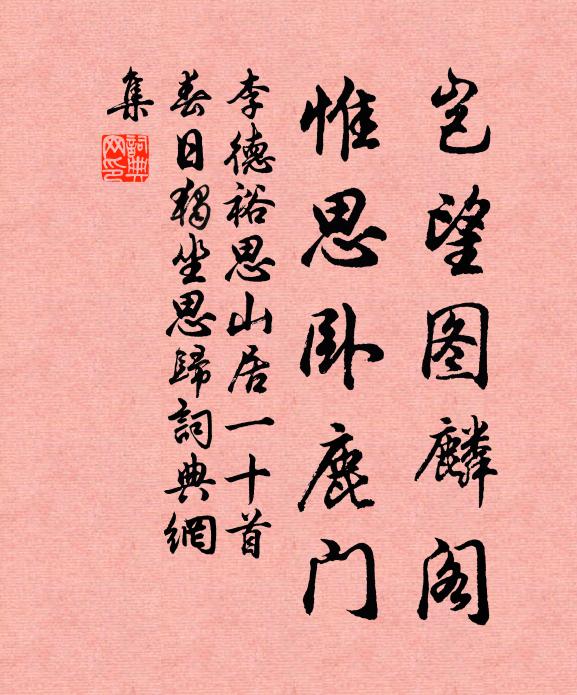 岂望图麟阁
惟思卧鹿门
李德裕思山居一十首
春日独坐思歸詞典網
集
詞典网印